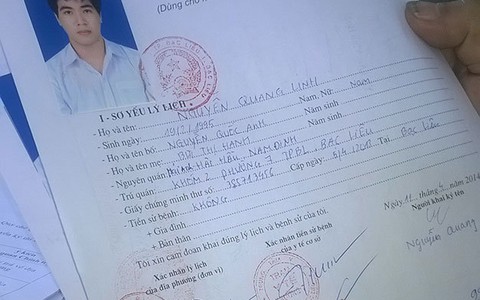 (Dùng cho h
I - SƠ YẾU LÝ LỊCH
- Họ và tên: NGUYỄN QUANG LINH Nam, Nữ: Nam
- Sinh ngày: 10/2/1995
- Họ và tên bố: NGUYỄN QUỐC ANH Năm sinh
- Họ và tên mẹ: BÙI THỊ HẠNH Năm sinh
- Nguyên quán: HẢI HẬU, NAM ĐỊNH
- Trú quán: KHÓM 2 PHƯỜNG 7, TPBL, BẠC LIÊU
- Giấy chứng minh thư số: Cấp ngày: Tại Bạc Liêu
- Tiền sử bệnh: KHÔNG
+ Gia đình
+ Bản thân
Tôi xin cam đoan khai đúng lý lịch và bệnh sử của tôi.
Ngày 11 tháng 4 năm 2014
Người khai ký tên
Xác nhận lý lịch
của địa phương (đơn vị)
Xác nhận tiền sử bệnh
của y tế cơ sở
Nguyễn Quang